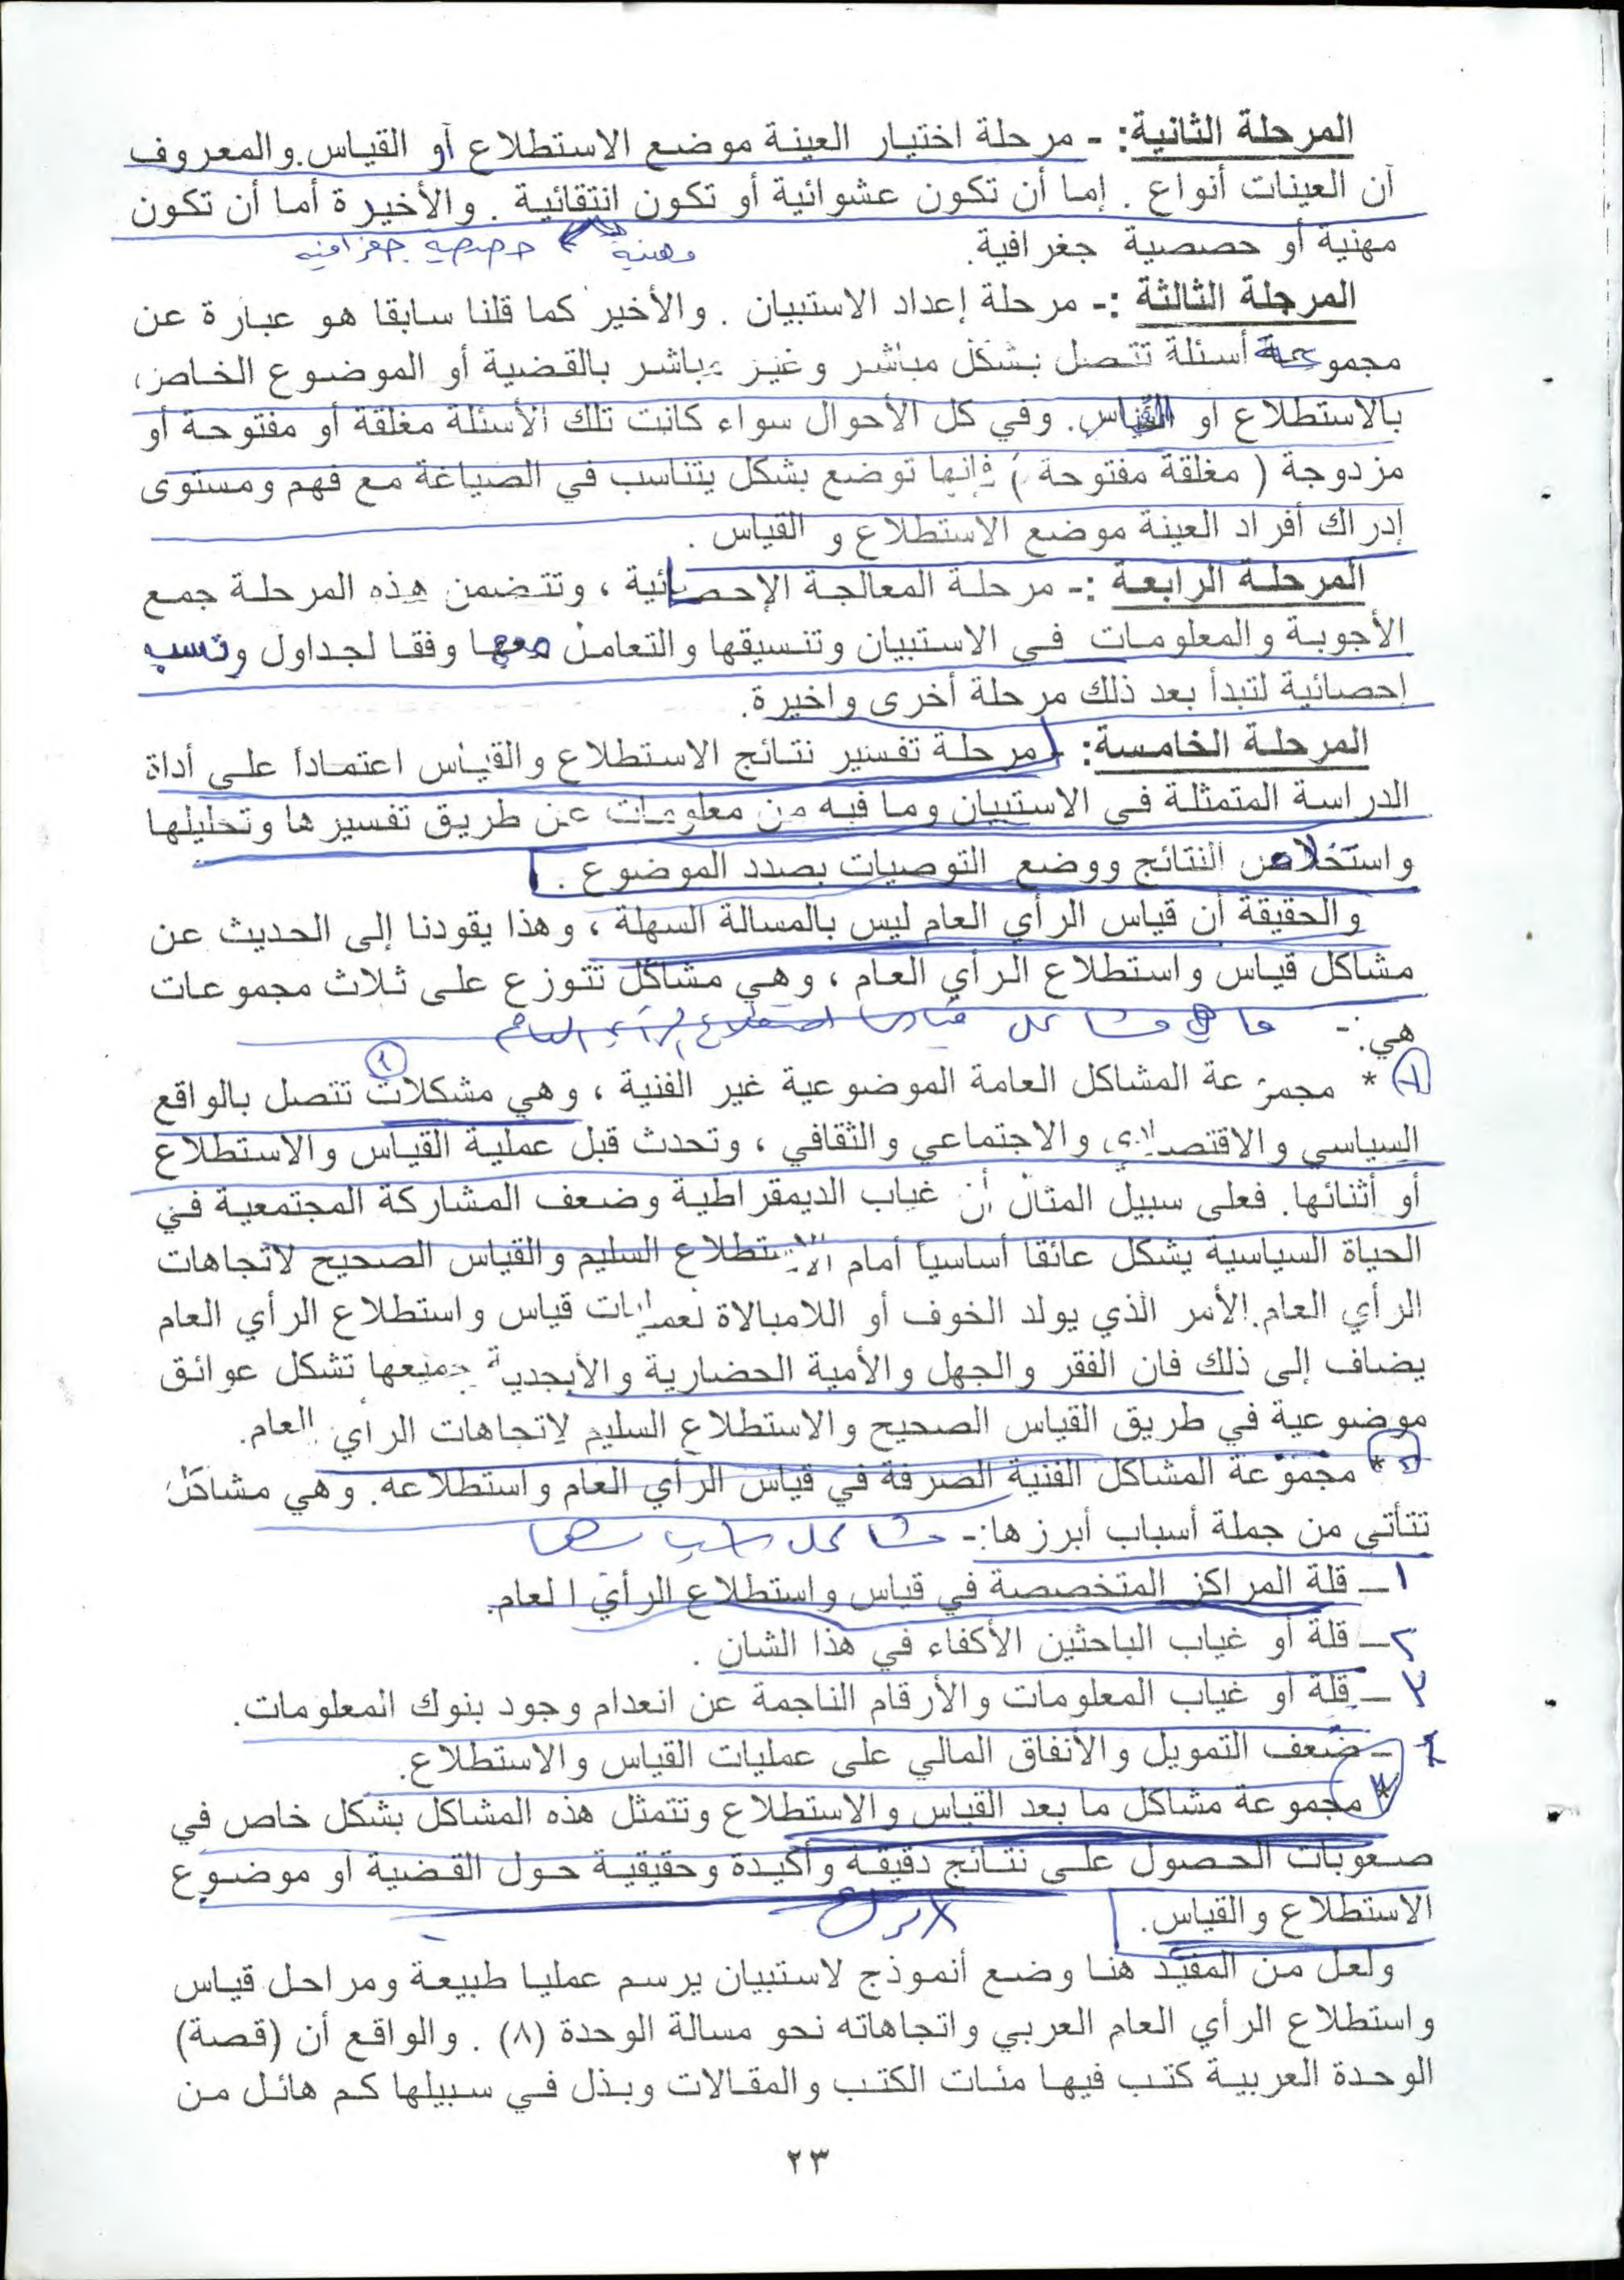 المرحلة الثانية: - مرحلة اختيار العينة موضع الاستطلاع أو القياس. والمعروف
أن العينات أنواع . إما أن تكون عشوائية أو تكون انتقائية . والأخيرة أما أن تكون
مهنية أو حصصية جغرافية.
مهنية حصصية جغرافية
المرحلة الثالثة :- مرحلة إعداد الاستبيان . والأخير كما قلنا سابقا هو عبارة عن
مجموعة أسئلة تتصل بشكل مباشر وغير مباشر بالقضية أو الموضوع الخاص
بالاستطلاع او القياس. وفي كل الأحوال سواء كانت تلك الأسئلة مغلقة أو مفتوحة أو
مزدوجة ( مغلقة مفتوحة ) فإنها توضع بشكل يتناسب في الصياغة مع فهم ومستوى
إدراك أفراد العينة موضع الاستطلاع و القياس .
المرحلة الرابعة :- مرحلة المعالجة الإحصائية ، وتتضمن هذه المرحلة جمع
الأجوبة والمعلومات في الاستبيان وتنسيقها والتعامل معها وفقا لجداول ونسب
إحصائية لتبدأ بعد ذلك مرحلة أخرى واخيرة.
المرحلة الخامسة: - مرحلة تفسير نتائج الاستطلاع والقياس اعتماداً على أداة
الدراسة المتمثلة في الاستبيان وما فيه من معلومات عن طريق تفسيرها وتحليلها
واستخلاص النتائج ووضع التوصيات بصدد الموضوع .
والحقيقة أن قياس الرأي العام ليس بالمسالة السهلة ، وهذا يقودنا إلى الحديث عن
مشاكل قياس واستطلاع الرأي العام ، وهي مشاكل تتوزع على ثلاث مجموعات
هي: -
ما هي مشاكل قياس استطلاع الرأي العام
١
١ * مجموعة المشاكل العامة الموضوعية غير الفنية ، وهي مشكلات تتصل بالواقع
السياسي والاقتصادي والاجتماعي والثقافي ، وتحدث قبل عملية القياس والاستطلاع
أو أثنائها. فعلى سبيل المثال أن غياب الديمقراطية وضعف المشاركة المجتمعية في
الحياة السياسية يشكل عائقا أساسياً أمام الاستطلاع السليم والقياس الصحيح لاتجاهات
الرأي العام. الأمر الذي يولد الخوف أو اللامبالاة لعمليات قياس واستطلاع الرأي العام
يضاف إلى ذلك فان الفقر والجهل والأمية الحضارية والأبجدية جميعها تشكل عوائق
موضوعية في طريق القياس الصحيح والاستطلاع السليم لاتجاهات الرأي العام.
* مجموعة المشاكل الفنية الصرفة في قياس الرأي العام واستطلاعه. وهي مشاكل
تتأتى من جملة أسباب أبرزها:-
مشاكل
١ – قلة المراكز المتخصصة في قياس واستطلاع الرأي العام.
٢ – قلة أو غياب الباحثين الأكفاء في هذا الشان .
٣ – قلة أو غياب المعلومات والأرقام الناجمة عن انعدام وجود بنوك المعلومات.
٤ – ضعف التمويل والأنفاق المالي على عمليات القياس والاستطلاع.
٣ * مجموعة مشاكل ما بعد القياس والاستطلاع وتتمثل هذه المشاكل بشكل خاص في
صعوبات الحصول على نتائج دقيقة وأكيدة وحقيقية حول القضية أو موضوع
الاستطلاع والقياس.
ولعل من المفيد هنا وضع أنموذج لاستبيان يرسم عمليا طبيعة ومراحل قياس
واستطلاع الرأي العام العربي واتجاهاته نحو مسالة الوحدة (٨) . والواقع أن (قصة)
الوحدة العربية كتب فيها مئات الكتب والمقالات وبذل في سبيلها كم هائل من
٢٣